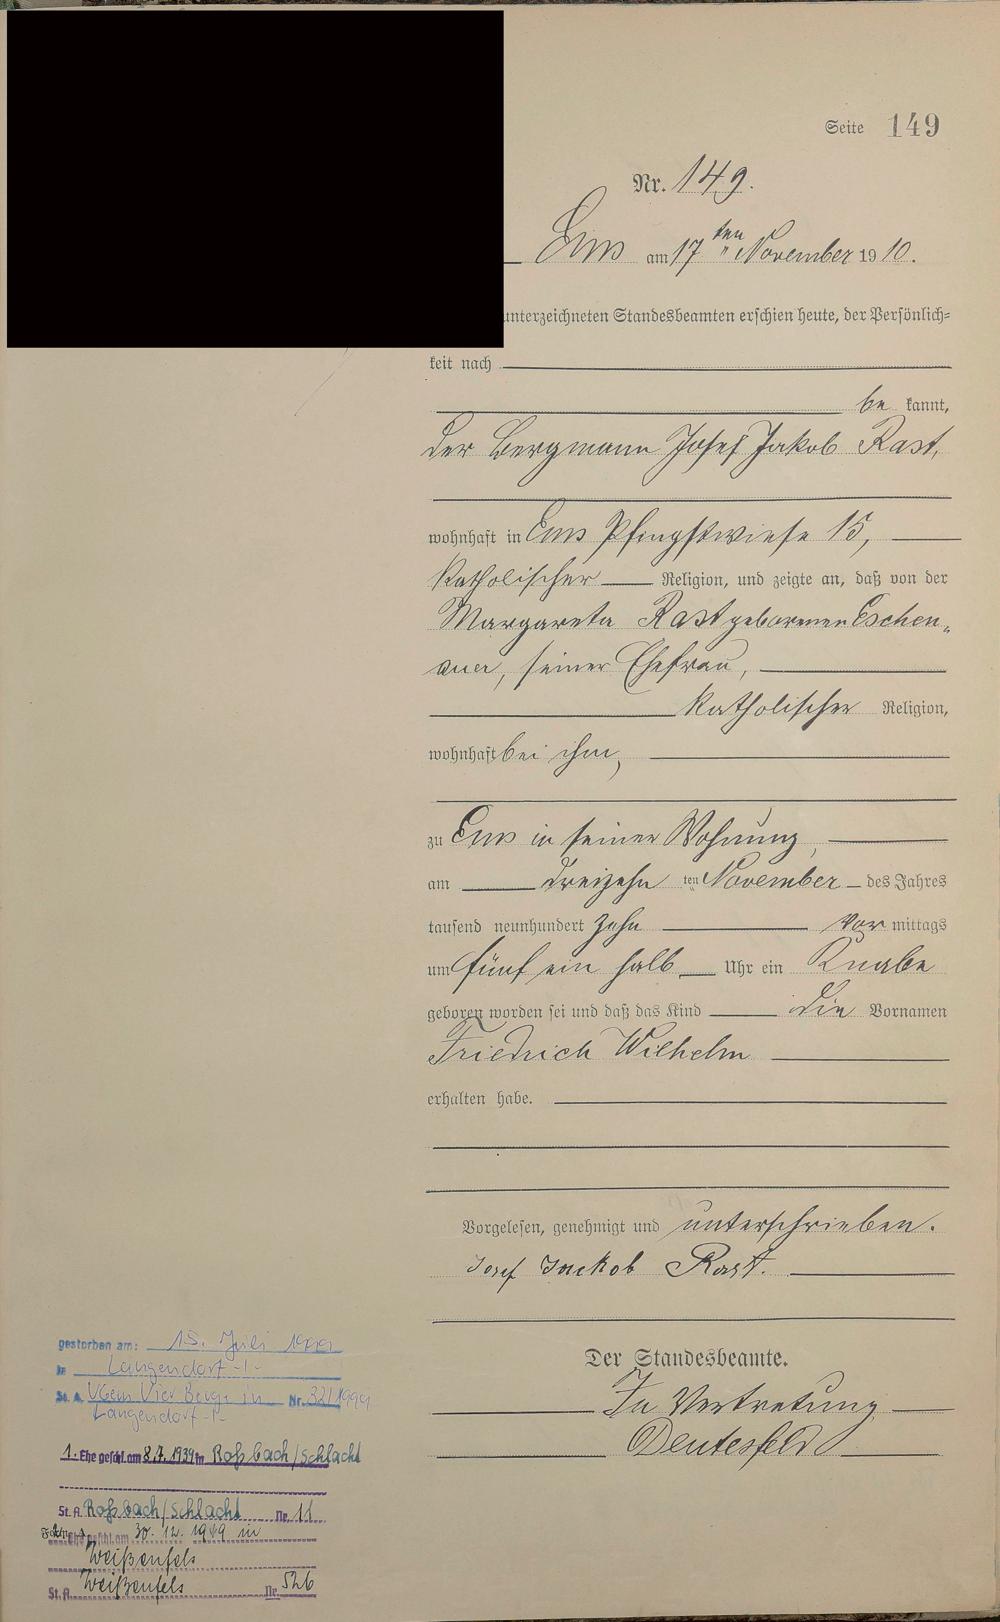 Seite 149
Nr. 149.
Ems am 17ten November 1910.
unterzeichneten Standesbeamten erschien heute, der Persönlich=
keit nach
be kannt,
der Bergmann Josef Jakob Rast,
wohnhaft in Ems Pfingstwiese 15,
katholischer Religion, und zeigte an, daß von der
Margareta Rast geborenen Eschen„
auer, seiner Ehefrau,
katholischer Religion,
wohnhaft bei ihm,
zu Ems in seiner Wohnung,
am dreizehn ten November des Jahres
tausend neunhundert zehn vor mittags
um fünf ein halb Uhr ein Knabe
geboren worden sei und daß das Kind die Vornamen
Friedrich Wilhelm
erhalten habe.
Vorgelesen, genehmigt und unterschrieben.
Josef Jackob Rast.
Der Standesbeamte.
In Vertretung
Deutesfeld
gestorben am: 15. Juli 1999
in Langendorf -1-
St. A. VGem Vier Berge in Nr. 32/1999
Langendorf -1-
1. Ehe geschl. am 8.7.1939 in Roßbach/Schlacht
St. A. Roßbach/Schlacht Nr. 11
Ehe geschl. am 30.12.1949 in
Weißenfels
St. A. Weißenfels Nr. 526